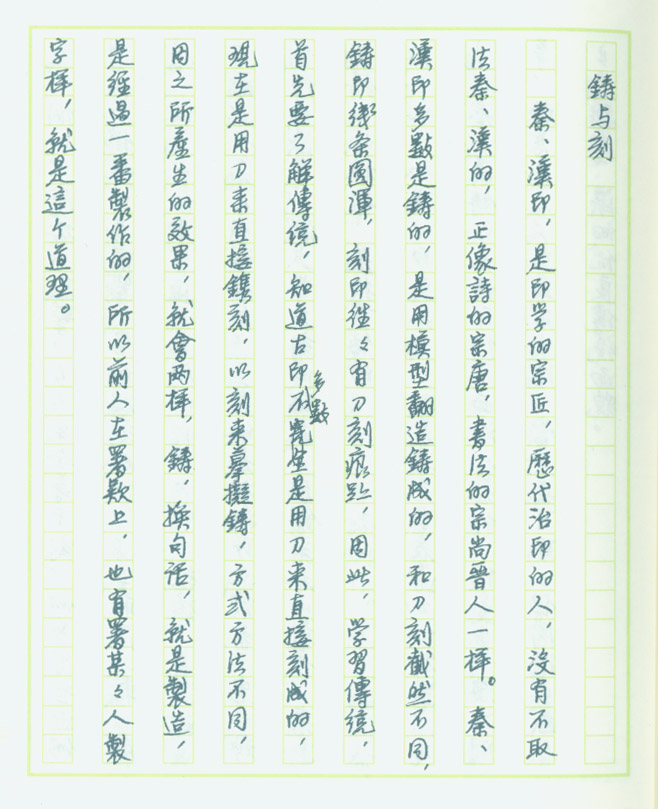 鑄与刻
秦、漢印，是印学的宗匠，歷代治印的人，没有不取
法秦、漢的，正像詩的宗唐，書法的宗尚晉人一樣。秦、
漢印多數是鑄的，是用模型翻造鑄成的，和刀刻截然不同，
鑄印綫条圓渾，刻印往々有刀刻痕跡，因此，学習傳統，
首先要了解傳統，知道古印多數不完全是用刀来直接刻成的，
現在是用刀来直接鐫刻，以刻来摹擬鑄，方式方法不同，
因之所產生的效果，就會两樣，鑄，換句话，就是製造，
是經過一番製作的，所以前人在署款上，也有署某々人製
字樣，就是這个道理。